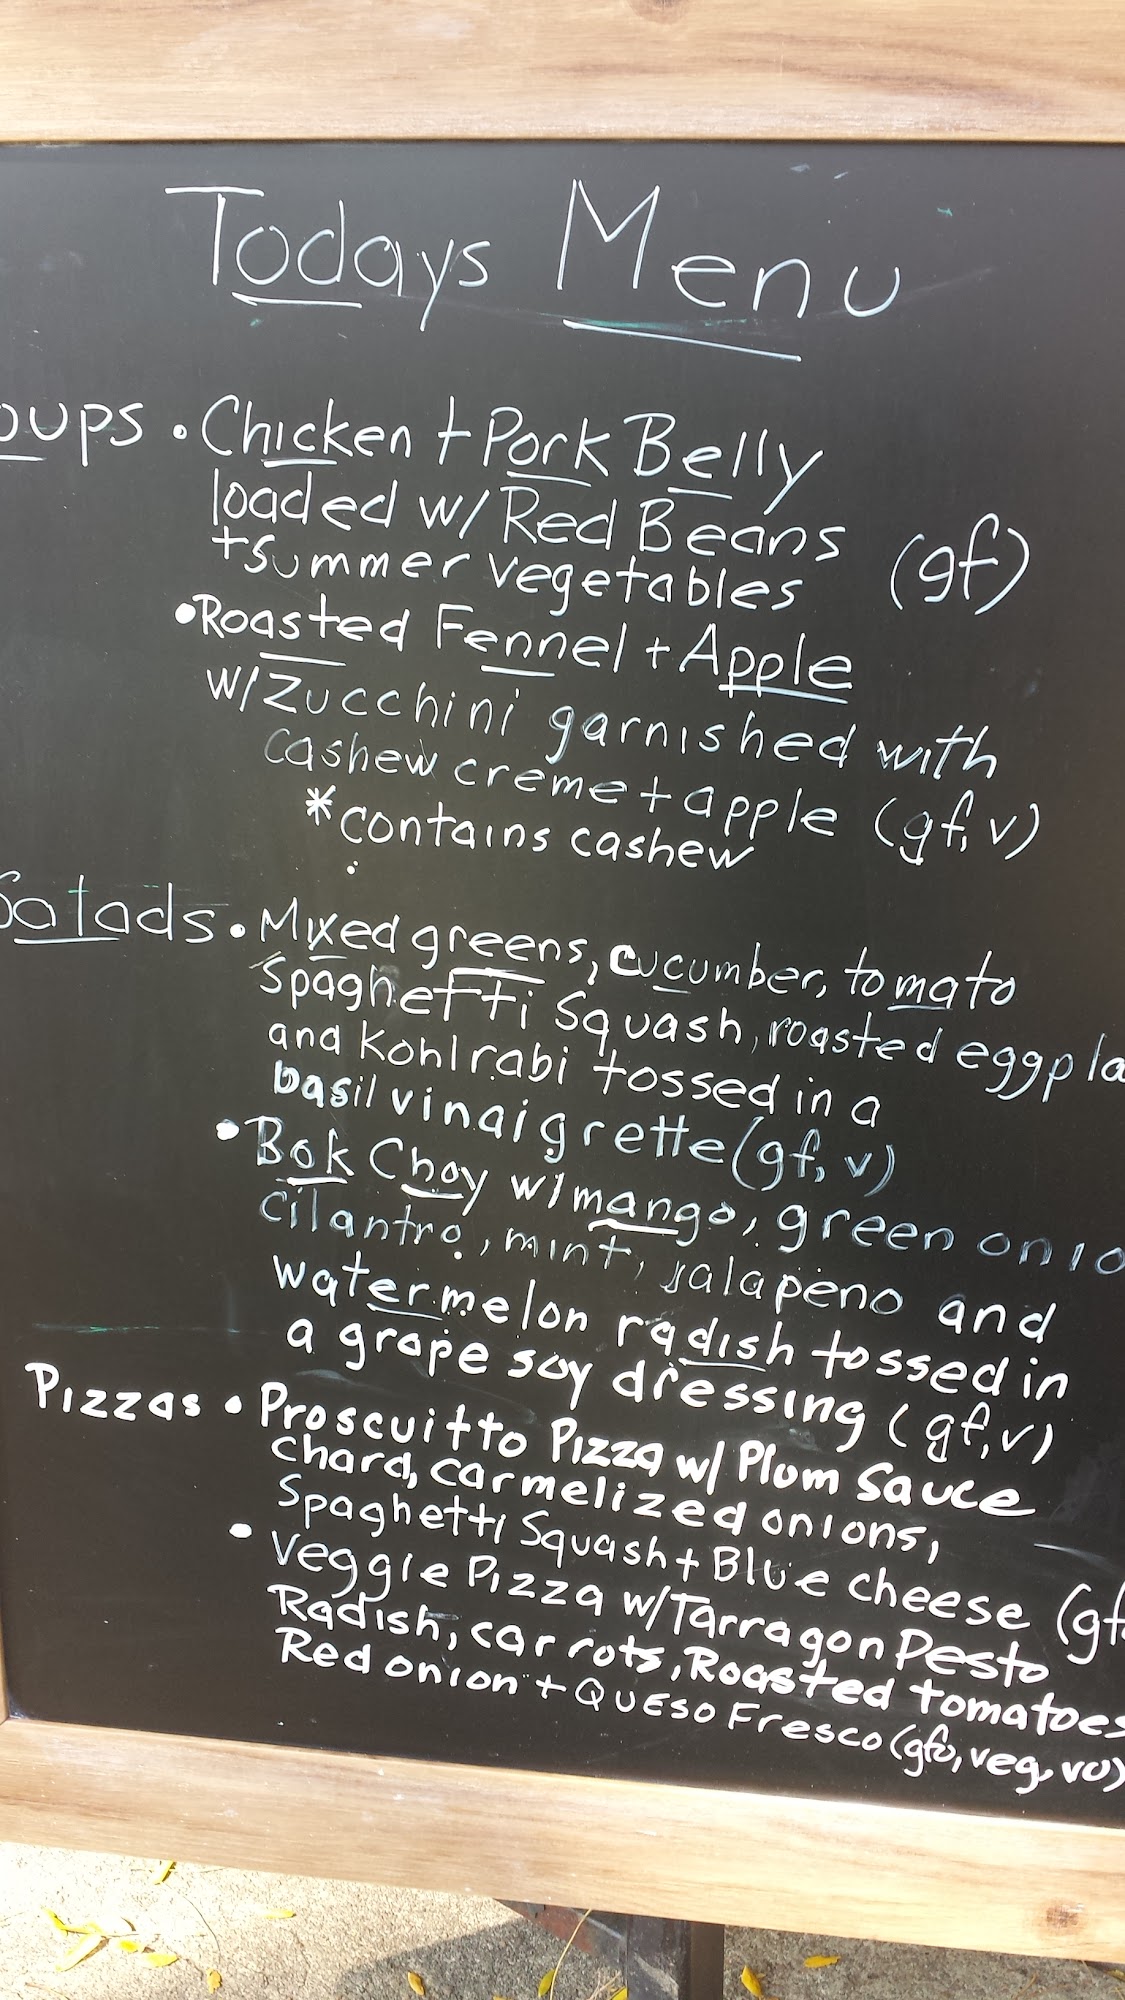 Todays Menu
oups • Chicken + Pork Belly
loaded w/ Red Beans (gf)
+ summer vegetables
• Roasted Fennel + Apple
w/ Zucchini garnished with
cashew creme + apple (gf, v)
* contains cashew
Salads • Mixed greens, cucumber, tomato
Spaghetti Squash, roasted eggpla
and Kohlrabi tossed in a
basil vinaigrette (gf, v)
• Bok Choy w/ mango, green onio
cilantro, mint, jalapeno and
watermelon radish tossed in
a grape soy dressing (gf, v)
Pizzas • Proscuitto Pizza w/ Plum Sauce
chard, carmelized onions,
Spaghetti Squash + Blue cheese (gf
• Veggie Pizza w/ Tarragon Pesto
Radish, carrots, Roasted tomatoes
Red onion + Queso Fresco (gfo, veg, vo)